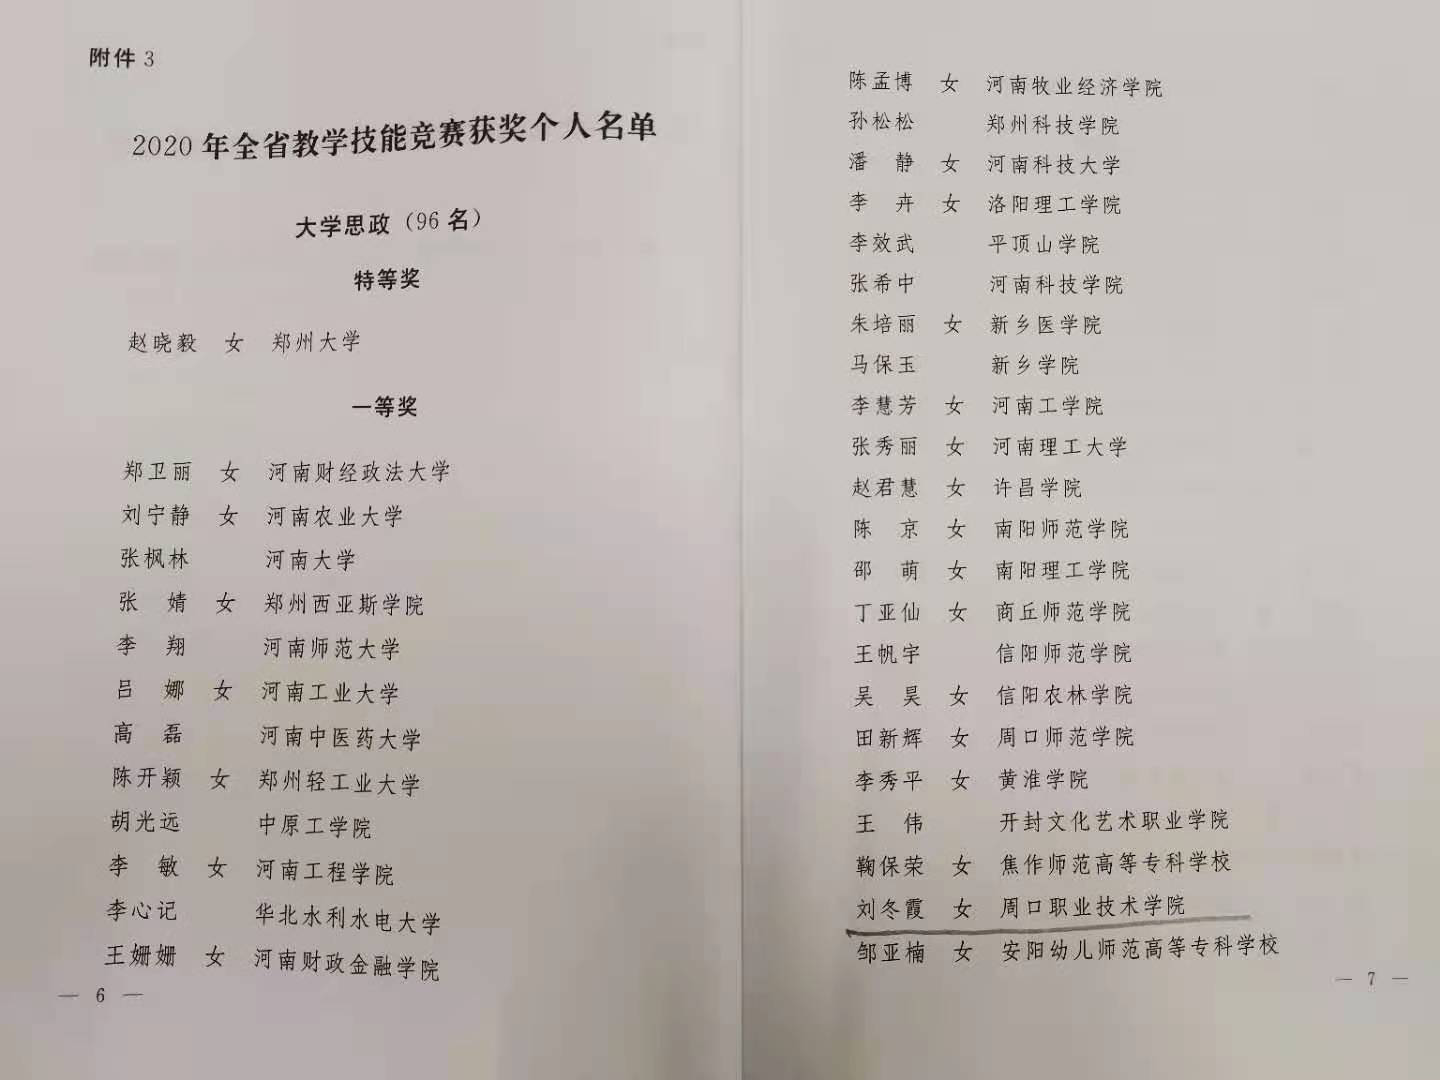 附件 3
2020 年全省教学技能竞赛获奖个人名单
大学思政（96 名）
特等奖
赵晓毅 女 郑州大学
一等奖
郑卫丽 女 河南财经政法大学
刘宁静 女 河南农业大学
张枫林 河南大学
张 婧 女 郑州西亚斯学院
李 翔 河南师范大学
吕 娜 女 河南工业大学
高 磊 河南中医药大学
陈开颖 女 郑州轻工业大学
胡光远 中原工学院
李 敏 女 河南工程学院
李心记 华北水利水电大学
王姗姗 女 河南财政金融学院
— 6 —
陈孟博 女 河南牧业经济学院
孙松松 郑州科技学院
潘 静 女 河南科技大学
李 卉 女 洛阳理工学院
李效武 平顶山学院
张希中 河南科技学院
朱培丽 女 新乡医学院
马保玉 新乡学院
李慧芳 女 河南工学院
张秀丽 女 河南理工大学
赵君慧 女 许昌学院
陈 京 女 南阳师范学院
邵 萌 女 南阳理工学院
丁亚仙 女 商丘师范学院
王帆宇 信阳师范学院
吴 昊 女 信阳农林学院
田新辉 女 周口师范学院
李秀平 女 黄淮学院
王 伟 开封文化艺术职业学院
鞠保荣 女 焦作师范高等专科学校
刘冬霞 女 周口职业技术学院
邹亚楠 女 安阳幼儿师范高等专科学校
— 7 —